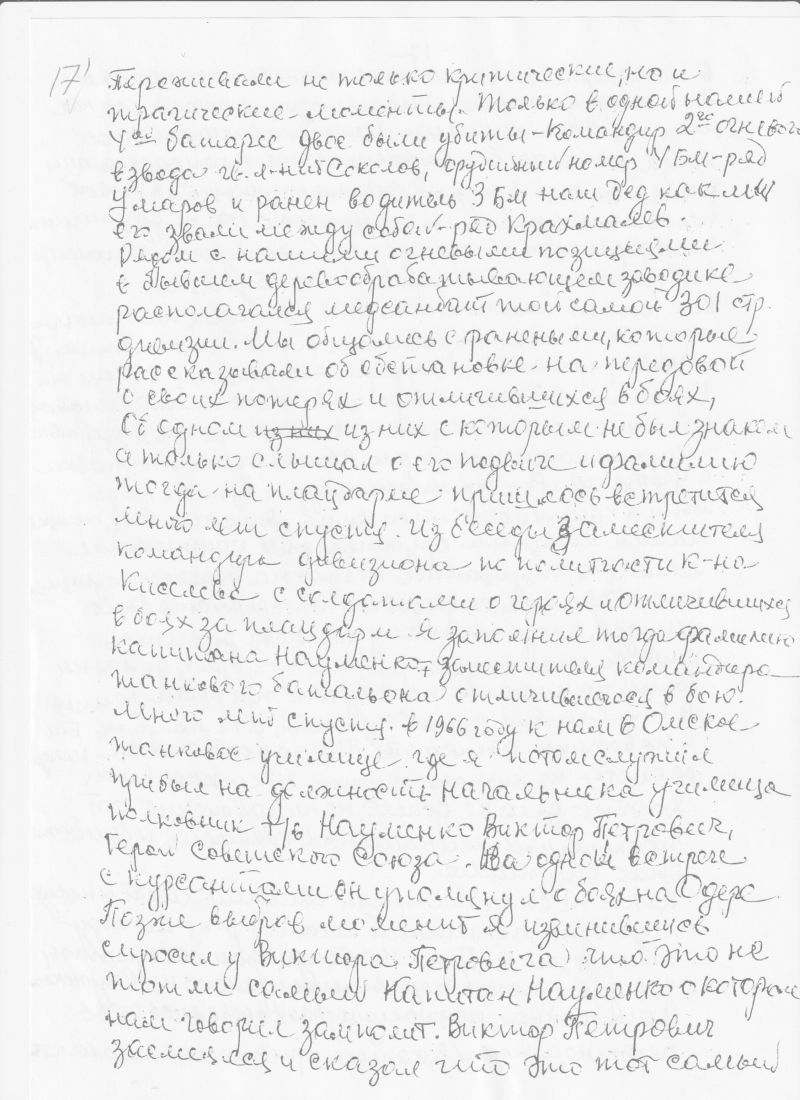 17
Переживали не только критические, но и
трагические моменты. Только в одной нашей
4ой батарее двое были убиты – Командир 2го огневого
взвода гв. л-нит Соколов, орудийный номер 4 БМ – ряд
Умаров и ранен водитель 3 БМ наш Дед как мы
его звали между собой – ряд Крахмалев.
Рядом с нашими огневыми позициями
в бывшем деревообрабатывающем заводике
располагался медсанбат той самой 301 стр.
дивизии. Мы общались с ранеными, которые
рассказывали об обстановке на передовой
о своих потерях и отличившихся в боях,
С одном из них из них с которым не был знаком
а только слышал о его подвиге и фамилию
тогда на плацдарме пришлось встретится
много лет спустя. Из беседы Заместителя
командира дивизиона по политчасти к-на
Киселева с солдатами о героях и отличившихся
в боях за плацдарм. Я запомнил тогда фамилию
капитана Науменко, заместителя командира
танкового батальона отличившегося в бою.
Много лет спустя в 1966 году к нам в Омское
танковое училище где я потом служил
прибыл на должность начальника училища
полковник т/в Науменко Виктор Петрович,
Герой Советского Союза. На одной встрече
с курсантами он упомянул о боях на Одере
Позже выбрав момент я извинившись
спросил у Виктора Петровича что это не
тот ли самый Капитан Науменко о котором
нам говорил замполит. Виктор Петрович
засмеялся и сказал что это тот самый